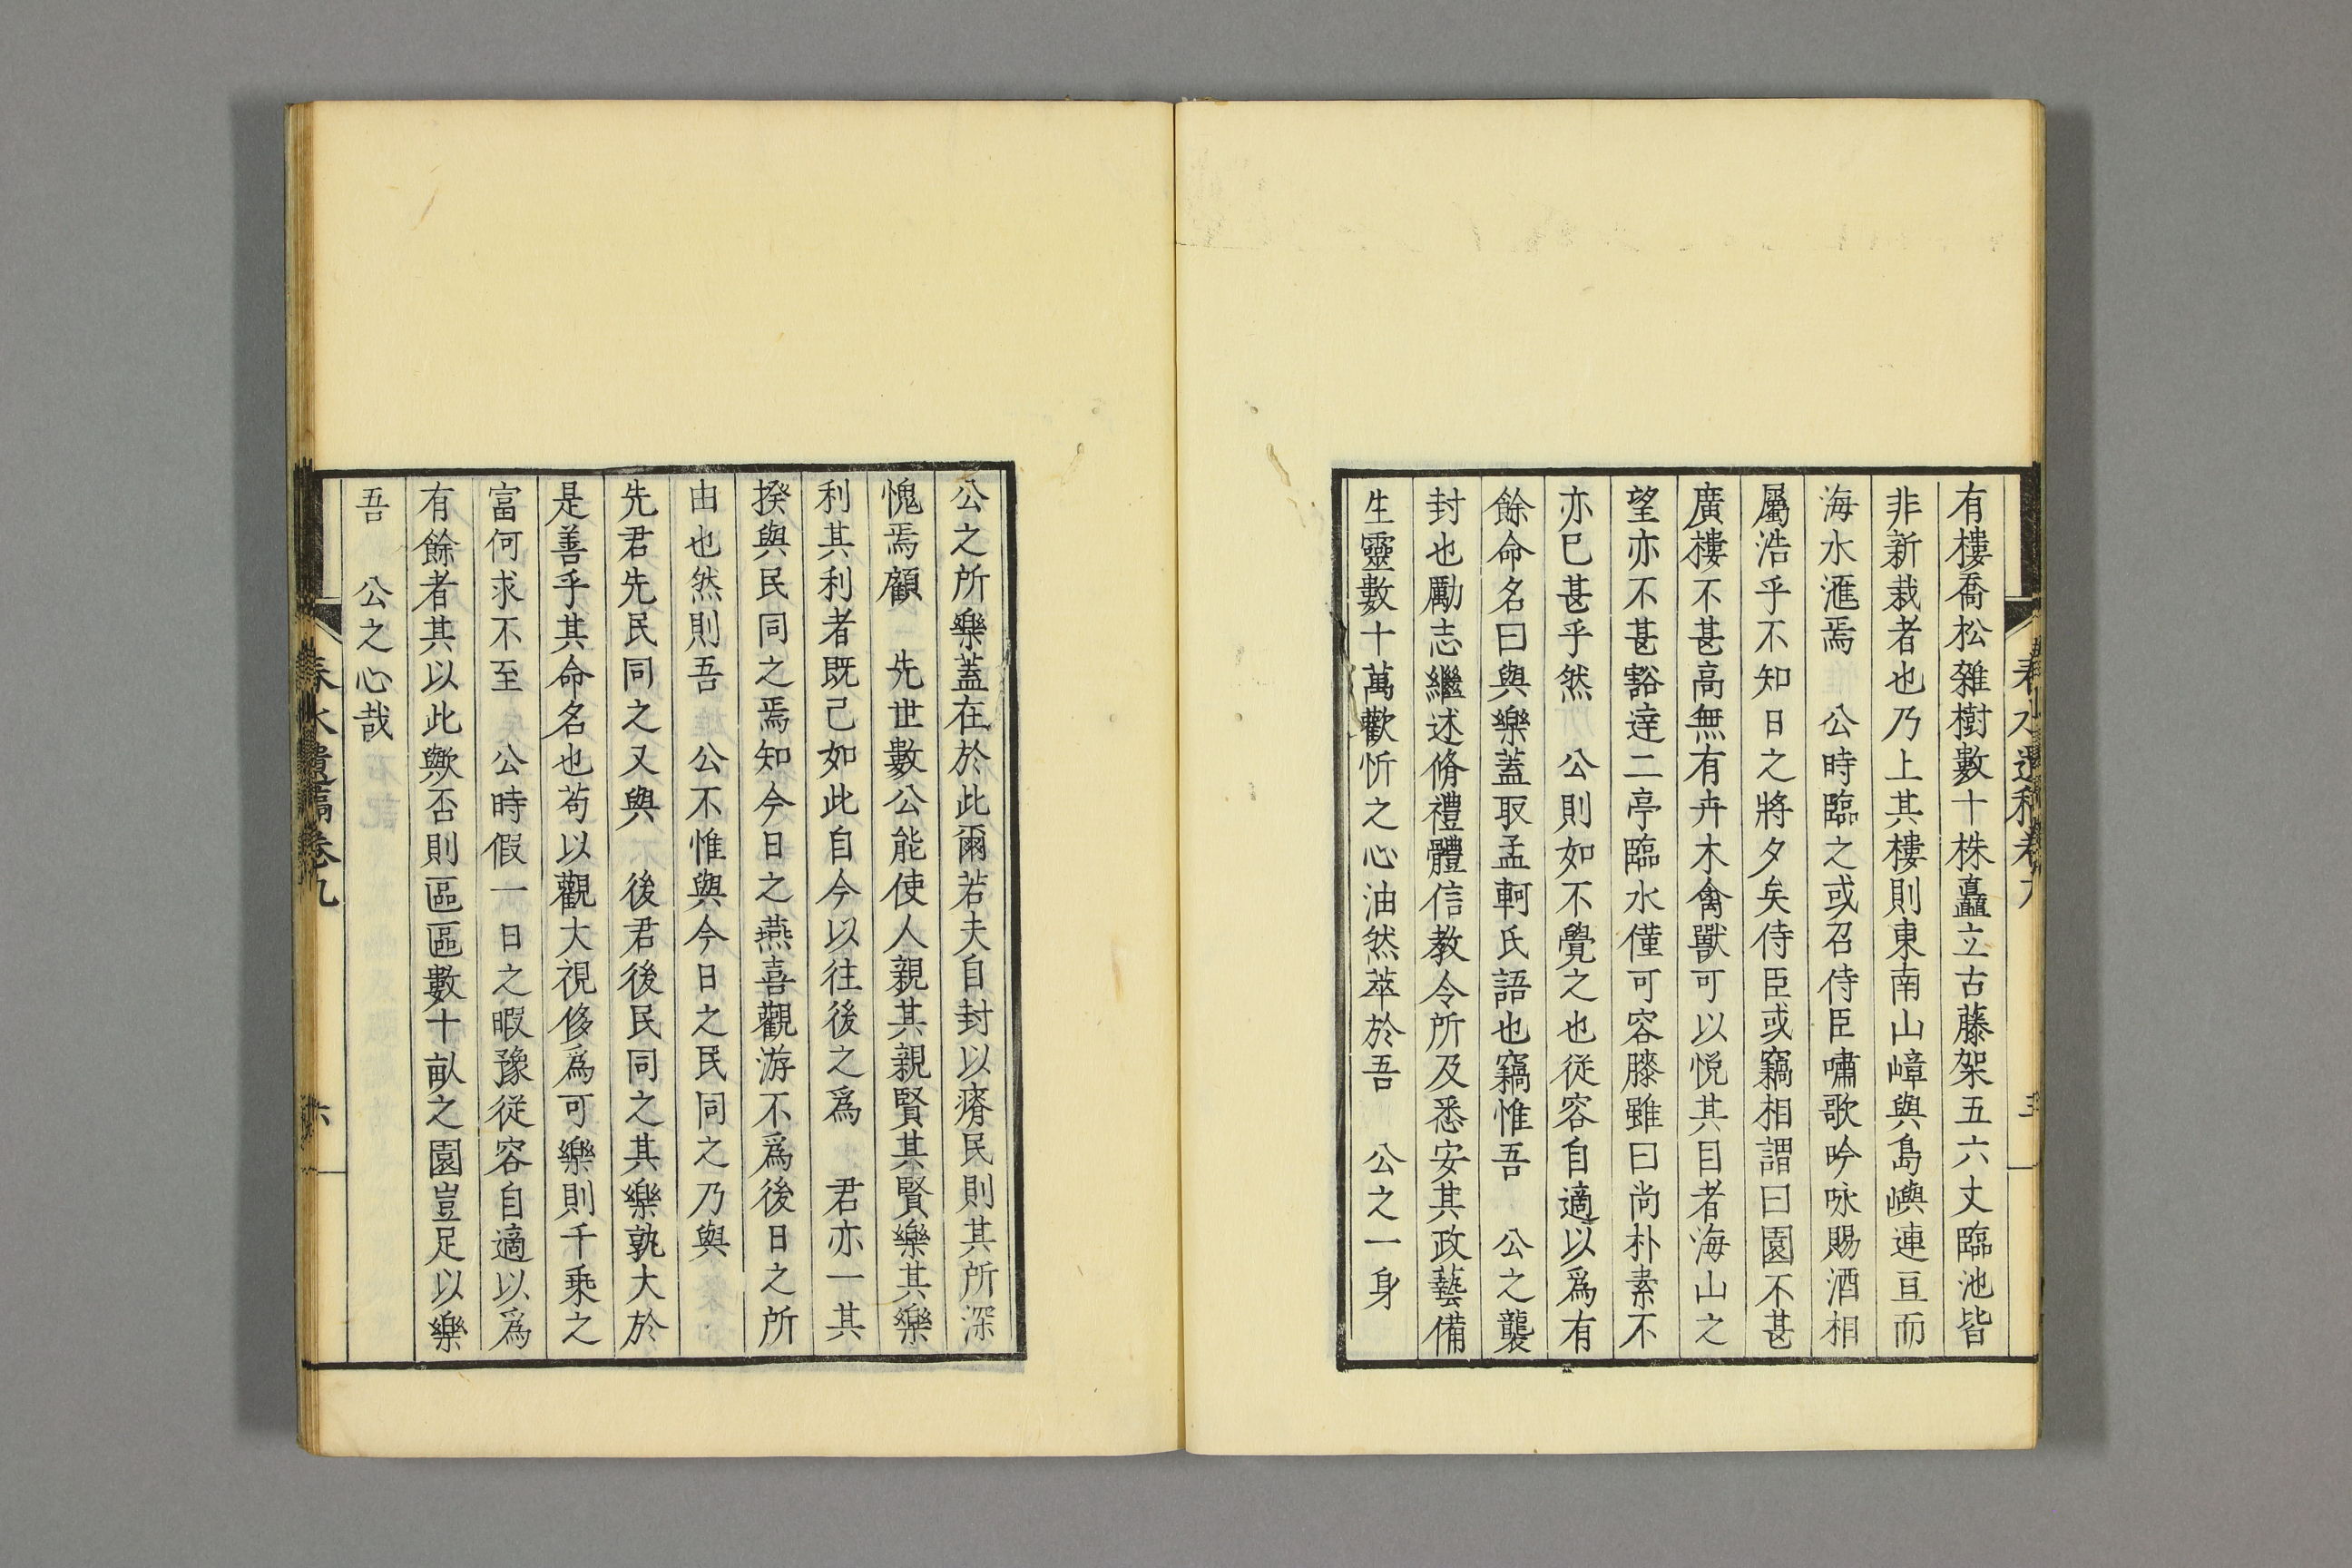 有樓喬松雜樹數十株矗立古藤架五六丈臨池皆
非新栽者也乃上其樓則東南山嶂與島嶼連亘而
海水滙焉　公時臨之或召侍臣嘯歌吟咏賜酒相
屬浩乎不知日之將夕矣侍臣或竊相謂曰園不甚
廣樓不甚高無有卉木禽獸可以悅其目者海山之
望亦不甚豁達二亭臨水僅可容膝雖曰尚朴素不
亦已甚乎然　公則如不覺之也從容自適以爲有
餘命名曰與樂蓋取孟軻氏語也竊惟吾　公之襲
封也勵志繼述脩禮體信教令所及悉安其政藝備
生靈數十萬歡忻之心油然萃於吾　公之一身
公之所樂蓋在於此爾若夫自封以瘠民則其所深
愧焉顧　先世數公能使人親其親賢其賢樂其樂
利其利者既已如此自今以往後之爲　君亦一其
揆與民同之焉知今日之燕喜觀游不爲後日之所
由也然則吾　公不惟與今日之民同之乃與
先君先民同之又與　後君後民同之其樂孰大於
是善乎其命名也苟以觀大視侈爲可樂則千乘之
富何求不至　公時假一日之暇豫從容自適以爲
有餘者其以此歟否則區區數十畝之園豈足以樂
吾　公之心哉
春水遺稿卷九
六